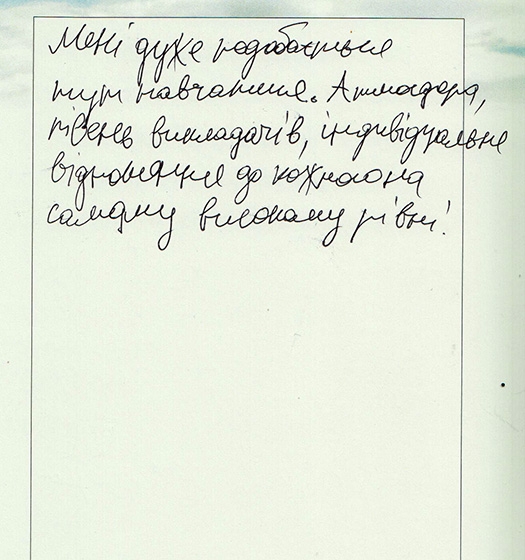 Мені дуже подобається
тут навчання. Атмосфера,
рівень викладачів, індивідуальне
відношення до кожного на
самому високому рівні!